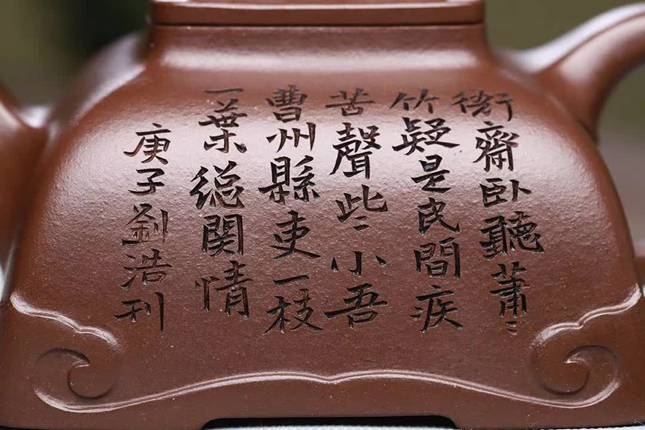 衙齋卧聽蕭〻
竹疑是民間疾
苦聲些〻小吾
曹州縣吏一枝
一葉總関情
庚子劉浩刊